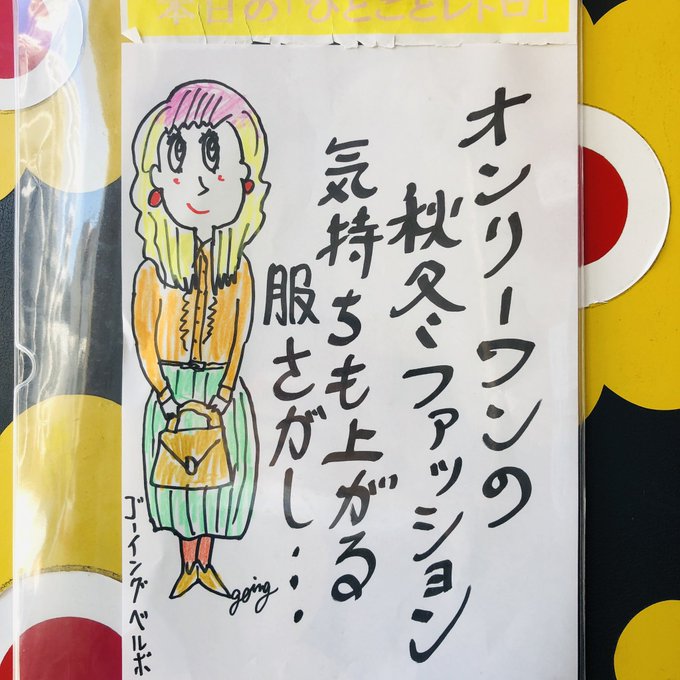 本日の「ひとことレトロ」
オンリーワンの
秋冬ファッション
気持ちも上がる
服さがし...
going
ゴーイングベルボ